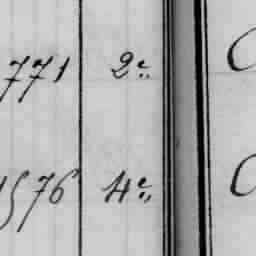 771 2e.
1576 4e.